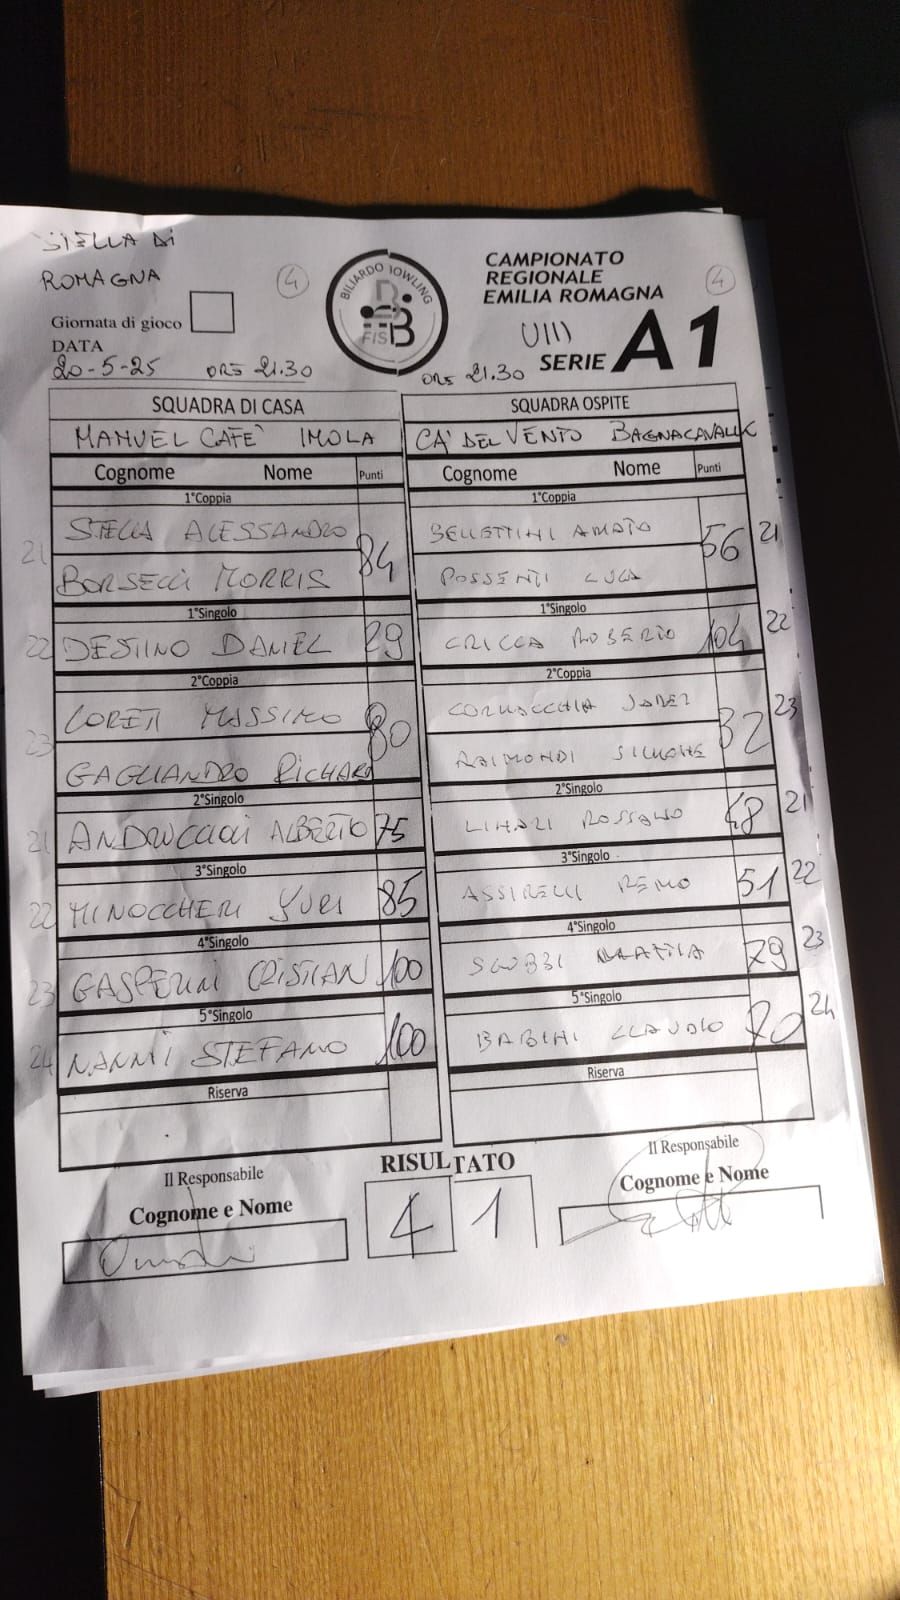 STELLA DI
ROMAGNA
4
BILIARDO BOWLING
FISBB
CAMPIONATO
REGIONALE
EMILIA ROMAGNA
4
Giornata di gioco
DATA
20-5-25 ORE 21.30
ORE 21.30
SERIE A1
SQUADRA DI CASA
SQUADRA OSPITE
MANUEL CAFE' IMOLA
CA' DEL VENTO BAGNACAVALLO
Cognome Nome Punti
Cognome Nome Punti
1°Coppia
1°Coppia
21 STELLA ALESSANDRO 84
BELLETTINI AMATO 56 21
BORSELLI MORRIS
POSSENTI LUCA
1°Singolo
1°Singolo
22 DESTINO DANIEL 29
CRICCA ROBERTO 104 22
2°Coppia
2°Coppia
23 LORETI MASSIMO 80
CORNACCHIA JADER 32 23
GAGLIANDRO RICHARD
RAIMONDI SIMONE
2°Singolo
2°Singolo
21 ALBERTO 75
LINARI ROSSANO 48 21
3°Singolo
3°Singolo
22 MINOCCHERI YURI 85
ASSIRELLI REMO 51 22
4°Singolo
4°Singolo
23 GASPERINI CRISTIAN 100
SGUBBI MATTIA 79 23
5°Singolo
5°Singolo
24 NANNI STEFANO 100
BABINI CLAUDIO 70 24
Riserva
Riserva
Il Responsabile
RISULTATO
Il Responsabile
Cognome e Nome
4 1
Cognome e Nome